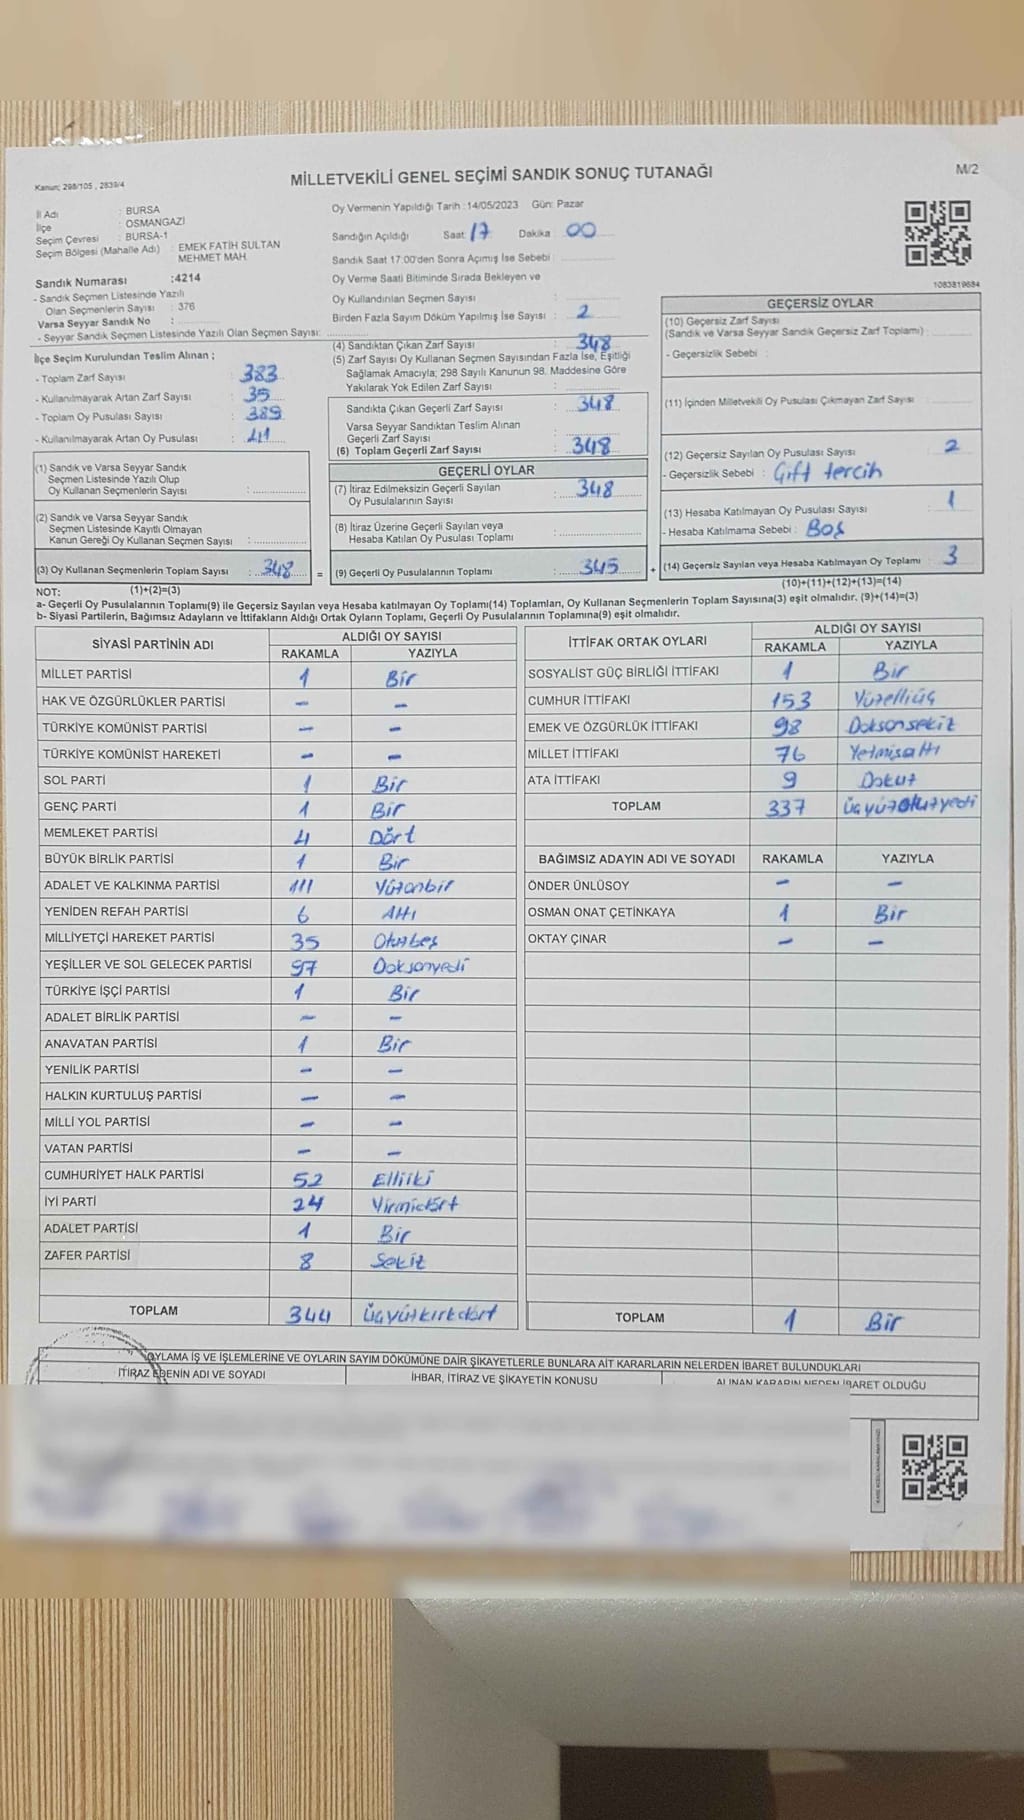 Kanun; 298/105 , 2839/4
MİLLETVEKİLİ GENEL SEÇİMİ SANDIK SONUÇ TUTANAĞI
M/2
İl Adı : BURSA
İlçe : OSMANGAZİ
Seçim Çevresi : BURSA-1
Seçim Bölgesi (Mahalle Adı) : EMEK FATİH SULTAN
MEHMET MAH.
Sandık Numarası :4214
- Sandık Seçmen Listesinde Yazılı
Olan Seçmenlerin Sayısı : 376
Varsa Seyyar Sandık No :
- Seyyar Sandık Seçmen Listesinde Yazılı Olan Seçmen Sayısı:
İlçe Seçim Kurulundan Teslim Alınan ;
- Toplam Zarf Sayısı : 383
- Kullanılmayarak Artan Zarf Sayısı : 35
- Toplam Oy Pusulası Sayısı : 389
- Kullanılmayarak Artan Oy Pusulası : 41
(1) Sandık ve Varsa Seyyar Sandık
Seçmen Listesinde Yazılı Olup
Oy Kullanan Seçmenlerin Sayısı :
(2) Sandık ve Varsa Seyyar Sandık
Seçmen Listesinde Kayıtlı Olmayan
Kanun Gereği Oy Kullanan Seçmen Sayısı :
(3) Oy Kullanan Seçmenlerin Toplam Sayısı : 348 =
Oy Vermenin Yapıldığı Tarih :14/05/2023 Gün: Pazar
Sandığın Açıldığı Saat: 17 Dakika : 00
Sandık Saat 17:00'den Sonra Açımış İse Sebebi :
Oy Verme Saati Bitiminde Sırada Bekleyen ve
Oy Kullandırılan Seçmen Sayısı :
Birden Fazla Sayım Döküm Yapılmış İse Sayısı : 2
(4) Sandıktan Çıkan Zarf Sayısı : 348
(5) Zarf Sayısı Oy Kullanan Seçmen Sayısından Fazla İse, Eşitliği
Sağlamak Amacıyla; 298 Sayılı Kanunun 98. Maddesine Göre
Yakılarak Yok Edilen Zarf Sayısı :
Sandıkta Çıkan Geçerli Zarf Sayısı : 348
Varsa Seyyar Sandıktan Teslim Alınan
Geçerli Zarf Sayısı :
(6) Toplam Geçerli Zarf Sayısı : 348
GEÇERLİ OYLAR
(7) İtiraz Edilmeksizin Geçerli Sayılan : 348
Oy Pusulalarının Sayısı
(8) İtiraz Üzerine Geçerli Sayılan veya
Hesaba Katılan Oy Pusulası Toplamı :
(9) Geçerli Oy Pusulalarının Toplamı : 345 +
1083819684
GEÇERSİZ OYLAR
(10) Geçersiz Zarf Sayısı
(Sandık ve Varsa Seyyar Sandık Geçersiz Zarf Toplamı) :
- Geçersizlik Sebebi :
(11) İçinden Milletvekili Oy Pusulası Çıkmayan Zarf Sayısı :
(12) Geçersiz Sayılan Oy Pusulası Sayısı : 2
- Geçersizlik Sebebi : Çift tercih
(13) Hesaba Katılmayan Oy Pusulası Sayısı : 1
- Hesaba Katılmama Sebebi : Boş
(14) Geçersiz Sayılan veya Hesaba Katılmayan Oy Toplamı : 3
NOT: (1)+(2)=(3)
(10)+(11)+(12)+(13)=(14)
a- Geçerli Oy Pusulalarının Toplamı(9) ile Geçersiz Sayılan veya Hesaba katılmayan Oy Toplamı(14) Toplamları, Oy Kullanan Seçmenlerin Toplam Sayısına(3) eşit olmalıdır. (9)+(14)=(3)
b- Siyasi Partilerin, Bağımsız Adayların ve İttifakların Aldığı Ortak Oyların Toplamı, Geçerli Oy Pusulalarının Toplamına(9) eşit olmalıdır.
SİYASİ PARTİNİN ADI ALDIĞI OY SAYISI
RAKAMLA YAZIYLA
MİLLET PARTİSİ 1 Bir
HAK VE ÖZGÜRLÜKLER PARTİSİ - -
TÜRKİYE KOMÜNİST PARTİSİ - -
TÜRKİYE KOMÜNİST HAREKETİ - -
SOL PARTİ 1 Bir
GENÇ PARTİ 1 Bir
MEMLEKET PARTİSİ 4 Dört
BÜYÜK BİRLİK PARTİSİ 1 Bir
ADALET VE KALKINMA PARTİSİ 111 Yüzonbir
YENİDEN REFAH PARTİSİ 6 Altı
MİLLİYETÇİ HAREKET PARTİSİ 35 Otuzbeş
YEŞİLLER VE SOL GELECEK PARTİSİ 97 Doksanyedi
TÜRKİYE İŞÇİ PARTİSİ 1 Bir
ADALET BİRLİK PARTİSİ - -
ANAVATAN PARTİSİ 1 Bir
YENİLİK PARTİSİ - -
HALKIN KURTULUŞ PARTİSİ - -
MİLLİ YOL PARTİSİ - -
VATAN PARTİSİ - -
CUMHURİYET HALK PARTİSİ 52 Elliiki
İYİ PARTİ 24 Yirmidört
ADALET PARTİSİ 1 Bir
ZAFER PARTİSİ 8 Sekiz
TOPLAM 344 Üçyüzkırkdört
İTTİFAK ORTAK OYLARI ALDIĞI OY SAYISI
RAKAMLA YAZIYLA
SOSYALİST GÜÇ BİRLİĞİ İTTİFAKI 1 Bir
CUMHUR İTTİFAKI 153 Yüzelliüç
EMEK VE ÖZGÜRLÜK İTTİFAKI 98 Doksansekiz
MİLLET İTTİFAKI 76 Yetmişaltı
ATA İTTİFAKI 9 Dokuz
TOPLAM 337 Üçyüzotuzyedi
BAĞIMSIZ ADAYIN ADI VE SOYADI RAKAMLA YAZIYLA
ÖNDER ÜNLÜSOY - -
OSMAN ONAT ÇETİNKAYA 1 Bir
OKTAY ÇINAR - -
TOPLAM 1 Bir
OYLAMA İŞ VE İŞLEMLERİNE VE OYLARIN SAYIM DÖKÜMÜNE DAİR ŞİKAYETLERLE BUNLARA AİT KARARLARIN NELERDEN İBARET BULUNDUKLARI
İTİRAZ EDENİN ADI VE SOYADI İHBAR, İTİRAZ VE ŞİKAYETİN KONUSU ALINAN KARARIN NEDEN İBARET OLDUĞU